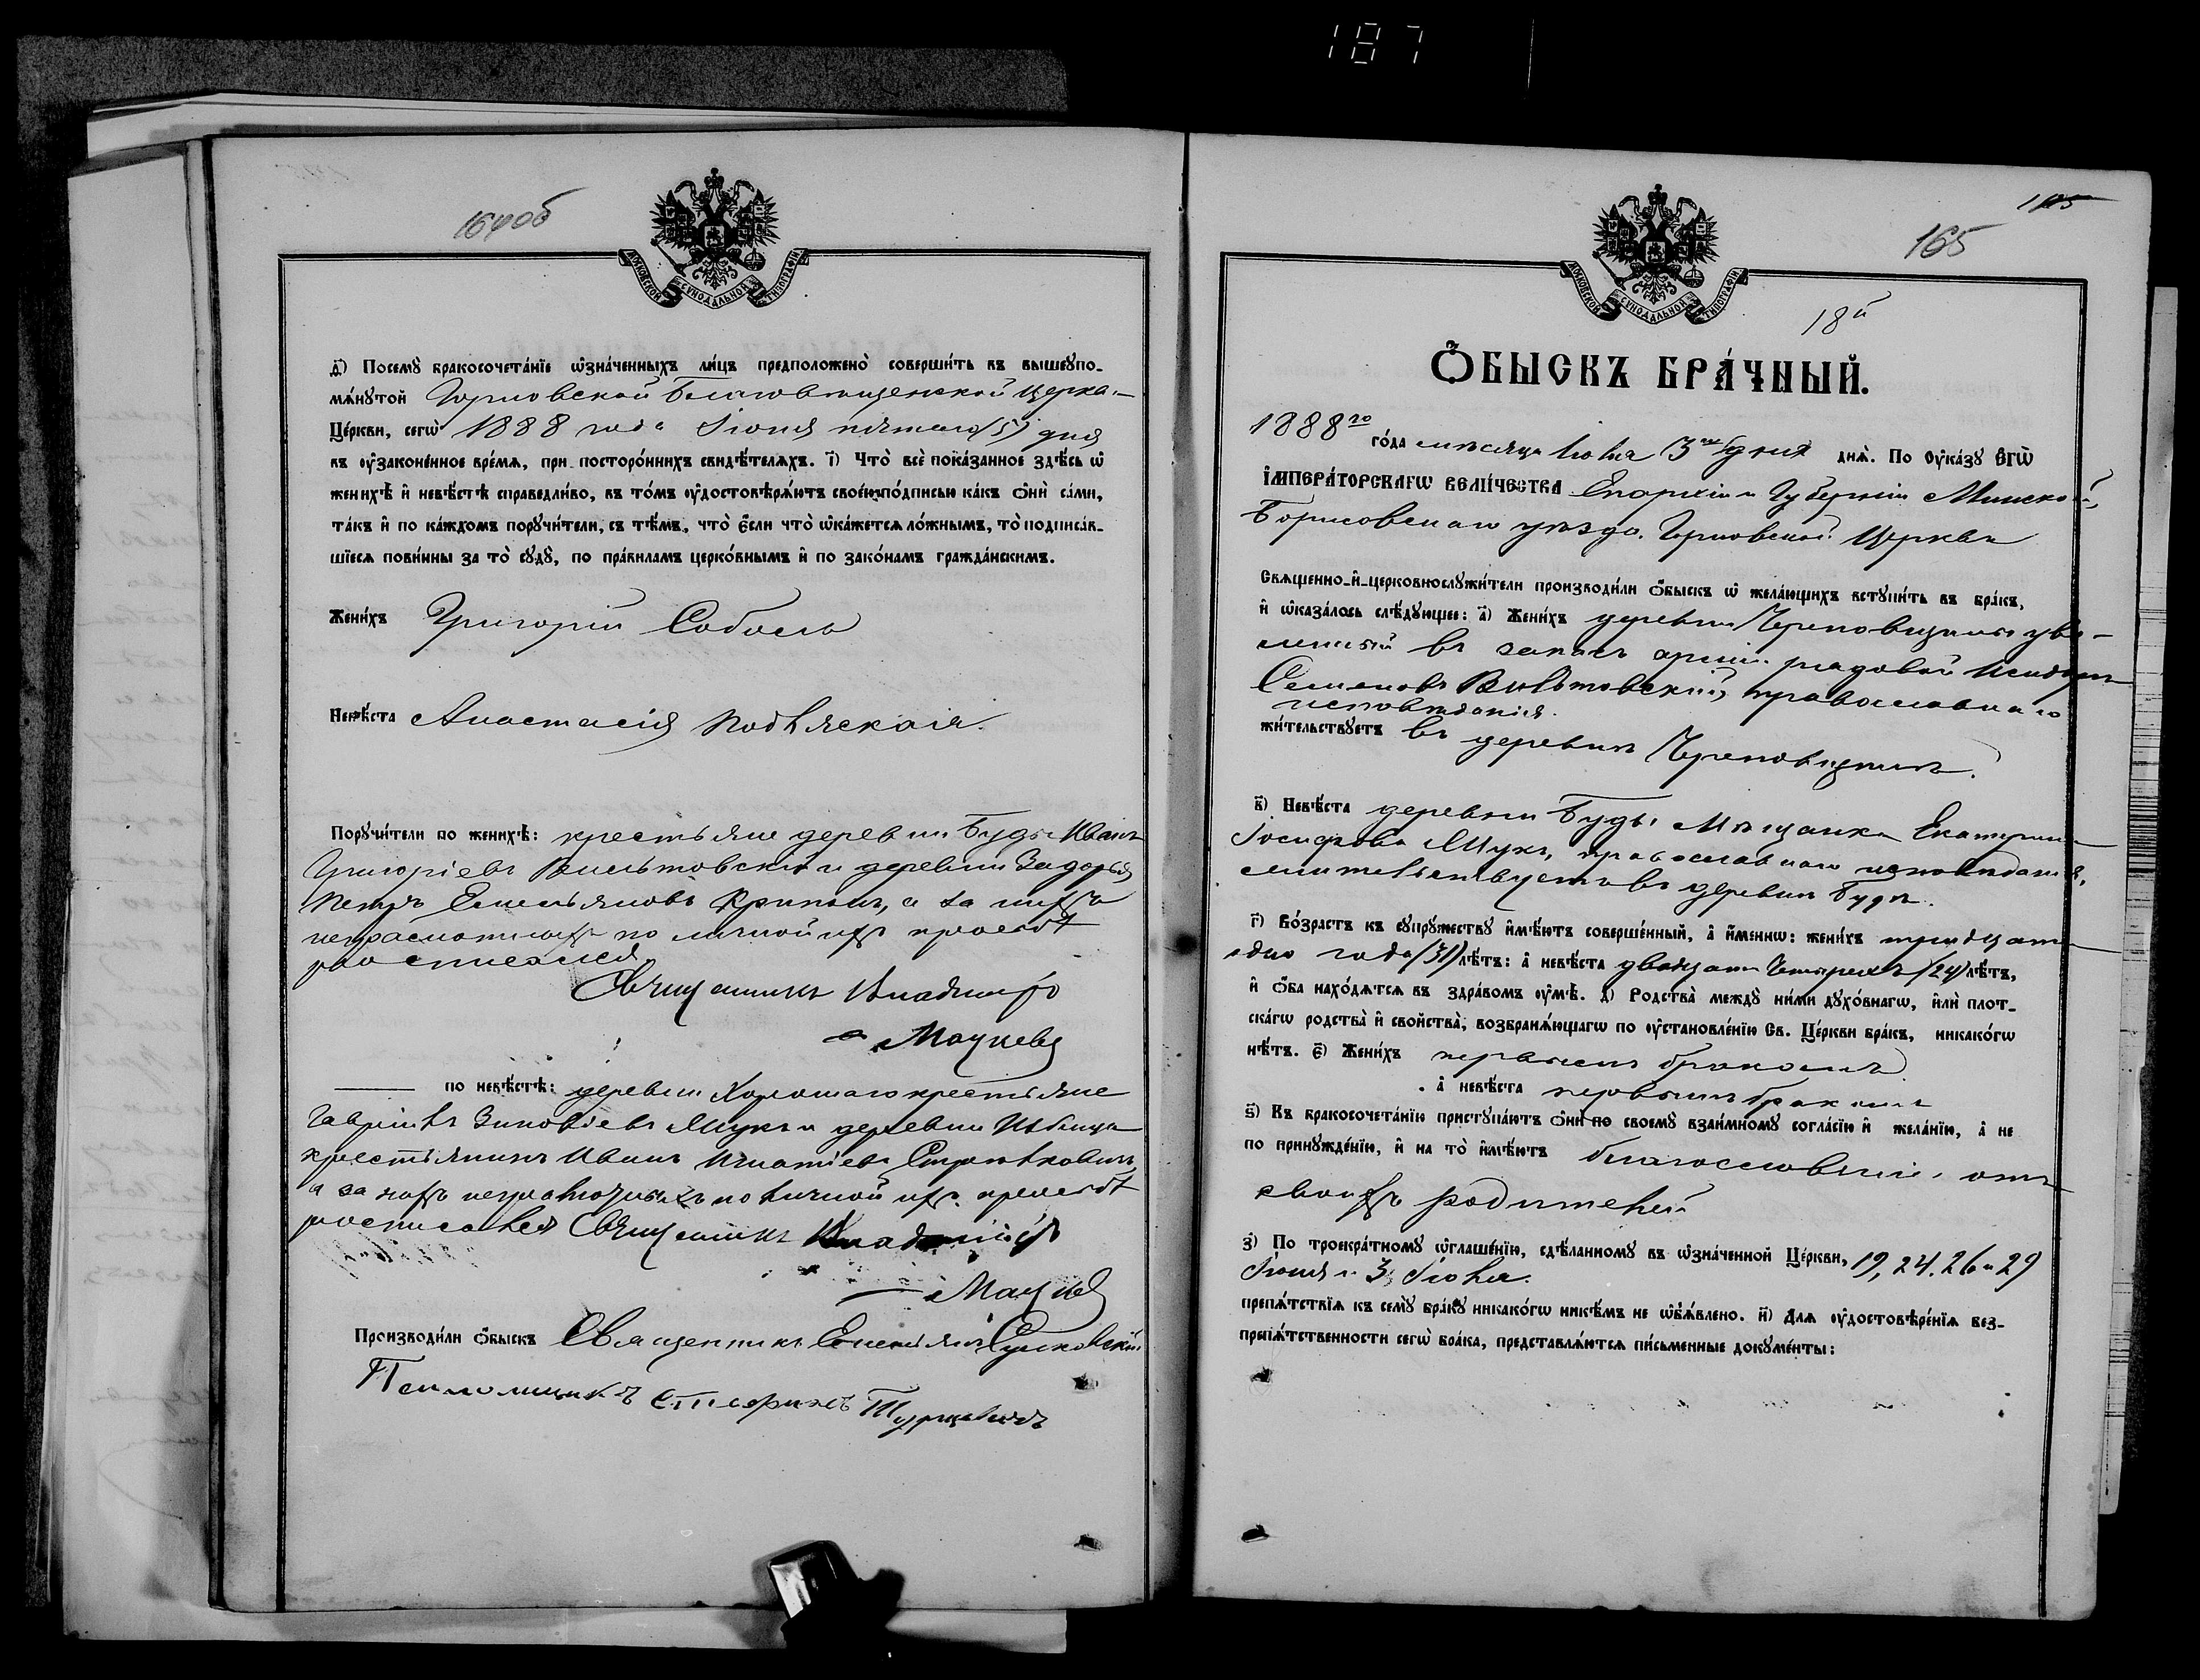 187
164об
МОСКОВСКОЙ СѴНОДАЛЬНОЙ ТИПОГРАФІИ
Посемꙋ̀ бракосочета́нїе ѡ҆зна́ченныхъ ли́цъ предположено̀ соверши́ть въ вышеꙋпо-
мѧ́нꙋтой Благовѣщенской церкви
Це́ркви, сегѡ̀ 1888 года Іюня пятаго (5) дня
въ ᲂу҆зако́ненное вре́мѧ, при посторо́ннихъ свидѣ́телѧхъ. і҃) Что̀ всѐ пока́занное здѣ́сь ѡ҆
женихѣ̀ и҆ невѣ́стѣ справедли́во, въ то́мъ ᲂу҆достовѣрѧ́ютъ свое́ю по́дписью ка́къ ѻ҆нѝ са́ми,
та́къ и҆ по ка́ждомъ порꙋчи́тели, съ тѣ́мъ, что̀ є҆́сли что̀ ѡ҆ка́жетсѧ ло́жнымъ, то̀ подписа́в-
шїесѧ пови́нны за то̀ сꙋдꙋ̀, по пра́виламъ церко́внымъ и҆ по зако́намъ гражда́нскимъ.
Жени́хъ Григорій Соболь
Невѣ́ста Анастасія
Порꙋчи́тели по женихѣ̀: крестьяне деревни Буды Иванъ
Григоріевъ Вильтовскій и деревни Задорья
Петръ Емельяновъ а за нихъ
неграмотныхъ по личной ихъ просьбѣ
росписался
Священникъ Владиміръ
Мацкевичъ
по невѣ́стѣ: деревни крестьяне
Гавріилъ Зиновіевъ Мукъ и деревни
крестьянинъ Иванъ Игнатіевъ
а за нихъ неграмотныхъ по личной ихъ просьбѣ
росписался Священникъ Владиміръ
Производи́ли ѻ҆́быскъ Священникъ Емельянъ
Псаломщикъ Стефанъ Турцевичъ
165
МОСКОВСКОЙ СѴНОДАЛЬНОЙ ТИПОГРАФІИ
18й
Ѻ҆БЫСКЪ БРА́ЧНЫЙ.
1888го го́да мѣсяца Іюля 3го дня днѧ̀. По ᲂу҆ка́зꙋ Є҆гѡ̀
І҆МПЕРА́ТОРСКАГѠ ВЕЛИ́ЧЕСТВА Епархіи и Губерніи Минской,
Борисовскаго уѣзда, Церкви
Свѧще́нно-и҆-церковнослꙋжи́тели производи́ли ѻ҆́быскъ ѡ҆ жела́ющихъ встꙋпи́ть въ бра́къ,
и҆ ѡ҆каза́лось слѣ́дꙋющее: а҃) Жени́хъ деревни уво-
ленный въ запасъ арміи рядовой Исидоръ
Семеновъ Вильтовскій, православнаго
исповѣданія.
жи́тельствꙋетъ въ деревнѣ
в҃) Невѣ́ста деревни Буды Мѣщанка Екатерина
Іосифова Мукъ, православнаго исповѣданія,
жительствуетъ въ деревнѣ Будѣ.
г҃) Во́зрастъ къ сꙋпрꙋ́жествꙋ и҆мѣ́ютъ соверше́нный, а҆ и҆́меннѡ: жени́хъ тридцати
одно года (31) лѣ́тъ: а҆ невѣ́ста двадцати четырехъ (24) лѣ́тъ,
и҆ ѻ҆́ба нахо́дѧтсѧ въ здра́вомъ ᲂу҆мѣ̀. д҃) Родства̀ междꙋ̀ ни́ми дꙋхо́внагѡ, и҆лѝ плот-
ска́гѡ родства̀ и҆ свойства̀, возбранѧ́ющагѡ по ᲂу҆становле́нїю Св. Це́ркви бра́къ, никако́гѡ
нѣ́тъ. є҃) Жени́хъ первымъ бракомъ
а҆ невѣ́ста первымъ бракомъ
ѕ҃) Къ бракосочета́нїю пристꙋпа́ютъ ѻ҆нѝ по своемꙋ̀ взаи́мномꙋ согла́сїю и҆ жела́нїю, а҆ не
по принꙋжде́нїю, и҆ на то̀ и҆мѣ́ютъ благословеніе отъ
своихъ родителей
з҃) По троекра́тномꙋ ѡ҆глаше́нїю, сдѣ́ланномꙋ въ ѡ҆зна́ченной Це́ркви, 19, 24, 26 и 29
Іюня и 3 Іюля
препѧ́тствїѧ къ семꙋ̀ бра́кꙋ никако́гѡ никѣ́мъ не ѡ҆б̾ѧ́влено. и҃) Длѧ ᲂу҆достовѣре́нїѧ без-
препѧ́тственности сегѡ̀ бра́ка, представлѧ́ютсѧ пи́сьменные докꙋме́нты: